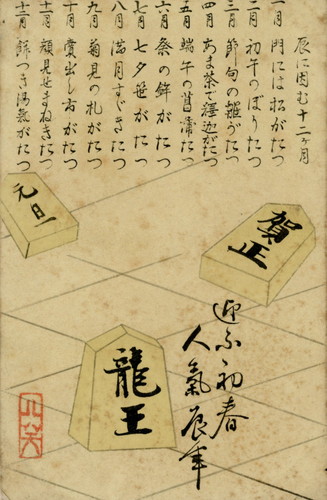 辰に因む十二ヶ月
一月 門には松がたつ
二月 初午のぼりたつ
三月 節句の雛がたつ
四月 あま茶で釋迦がたつ
五月 端午の菖蒲たつ
六月 祭の鉾がたつ
七月 七夕笹がたつ
八月 満月すゝきたつ
九月 菊見の札がたつ
十月 棠出し市がたつ
十一月 顔見せまねきたつ
十二月 餅つき湯氣がたつ
元旦
賀正
迎ふ初春
人氣辰年
龍王